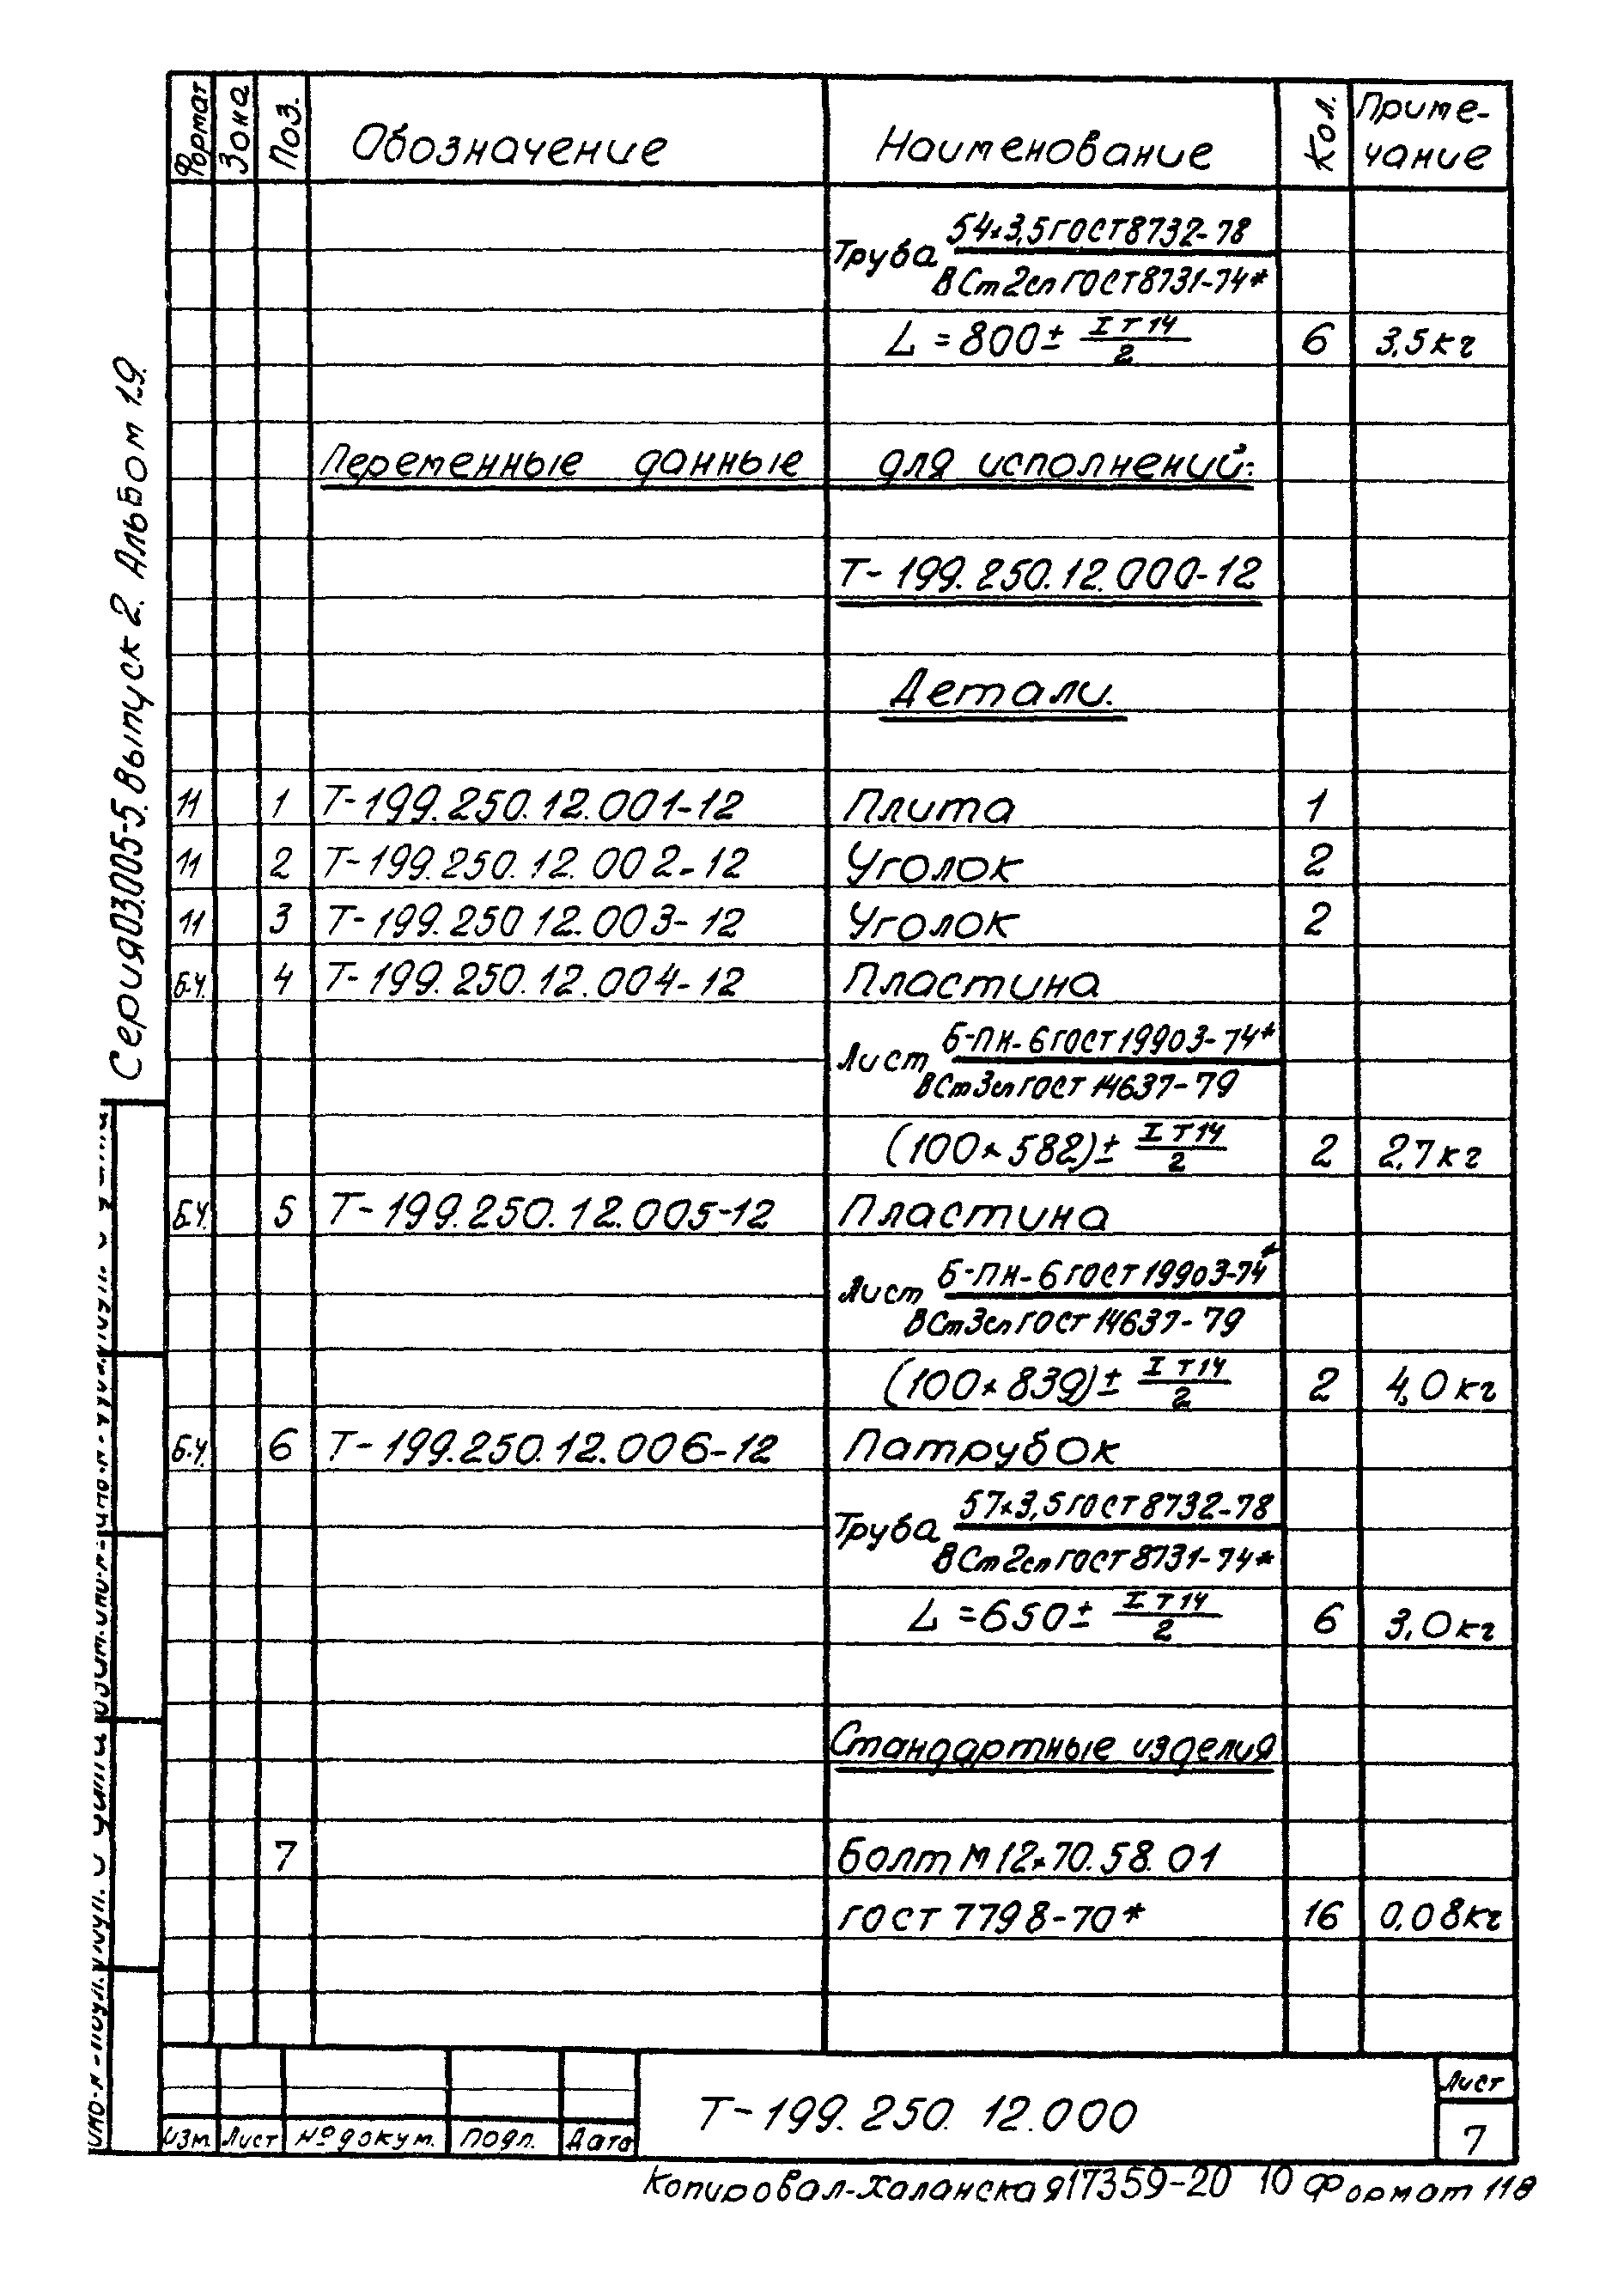 Формат Зона Поз. Обозначение Наименование Кол. Приме-
чание
Труба 54×3,5 ГОСТ 8732-78
ВСт2сп ГОСТ 8731-74*
L = 800 ± IT14/2 6 3,5кг
Переменные данные для исполнений:
Т-199.250.12.000-12
Детали.
11 1 Т-199.250.12.001-12 Плита 1
11 2 Т-199.250.12.002-12 Уголок 2
11 3 Т-199.250 12.003-12 Уголок 2
Б.Ч. 4 Т-199.250.12.004-12 Пластина
Лист Б-ПН-6 ГОСТ 19903-74*
ВСт3сп ГОСТ 14637-79
(100×582)± IT14/2 2 2,7кг
Б.Ч. 5 Т-199.250.12.005-12 Пластина
Лист Б-ПН-6 ГОСТ 19903-74*
ВСт3сп ГОСТ 14637-79
(100×839)± IT14/2 2 4,0кг
Б.Ч. 6 Т-199.250.12.006-12 Патрубок
Труба 57×3,5 ГОСТ 8732-78
ВСт2сп ГОСТ 8731-74*
L =650± IT14/2 6 3,0кг
Стандартные изделия
7 Болт М12×70.58.01
ГОСТ 7798-70* 16 0,08кг
Серия 03.005-5. Выпуск 2. Альбом 19.
Изм. Лист №докум. Подп. Дата
Т-199.250.12.000
Лист
7
Копировал-Халанская 17359-20 10 Формат 11В